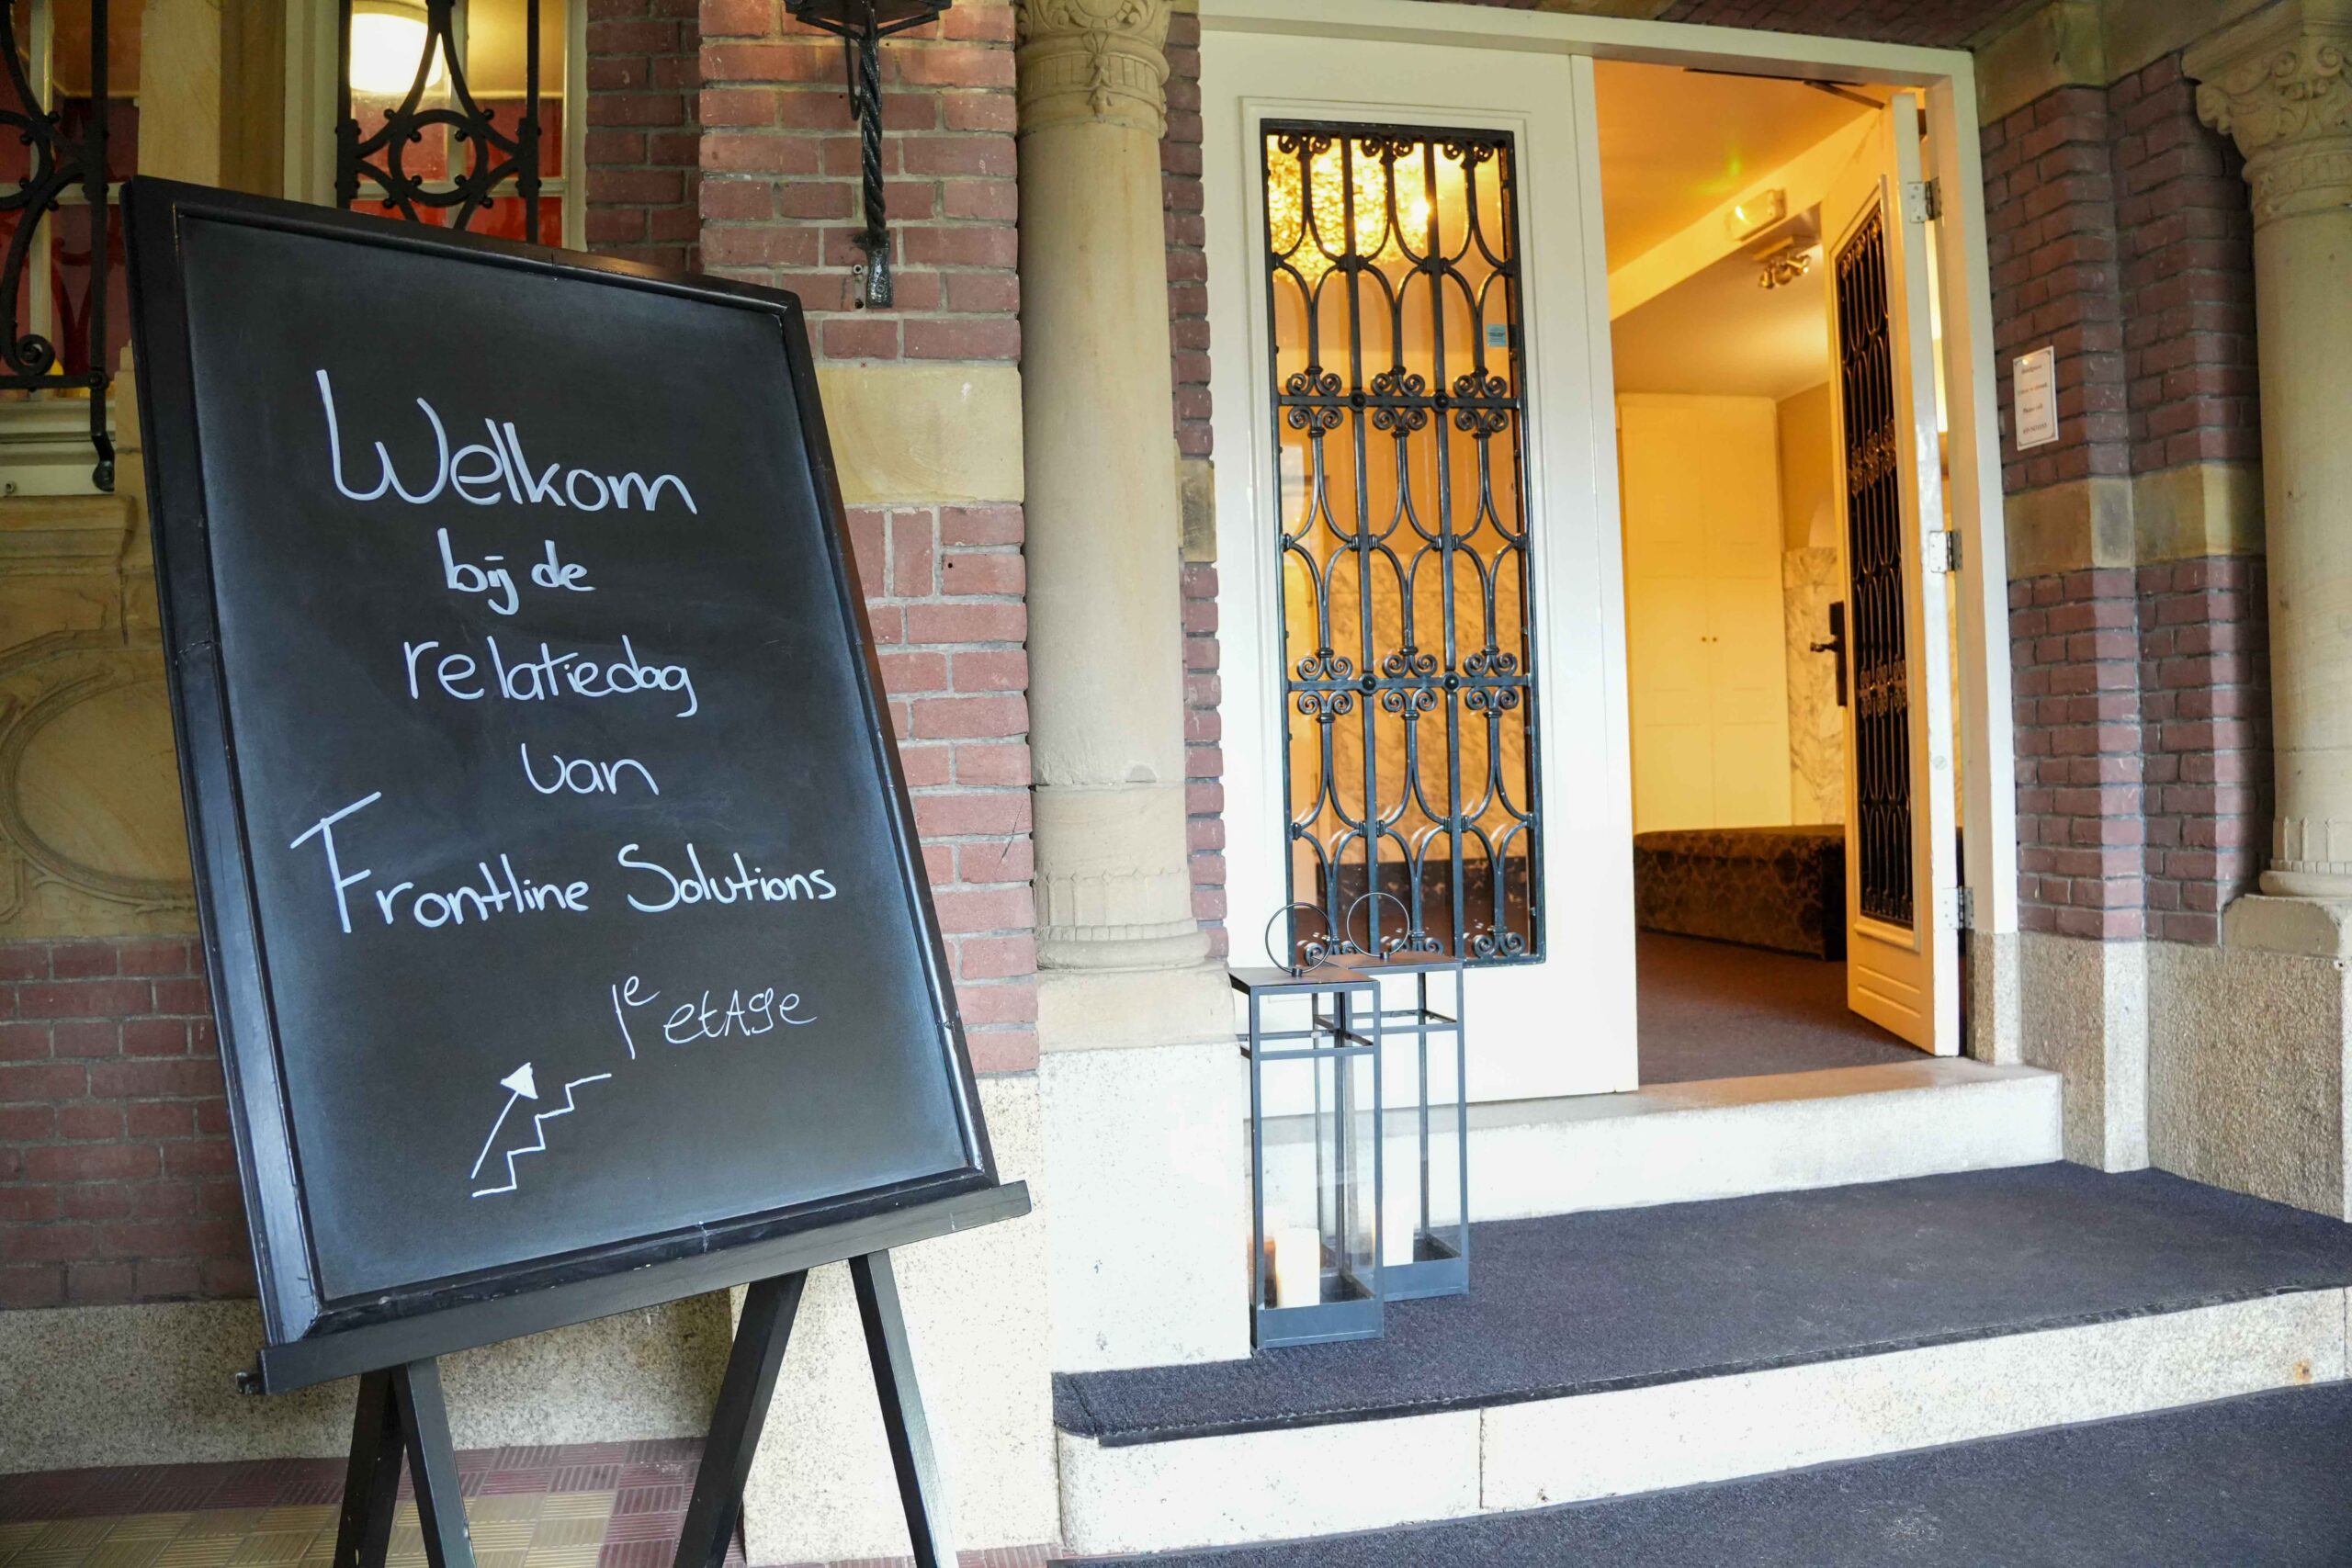 Welkom
bij de
relatiedag
van
Frontline Solutions
1e etAge